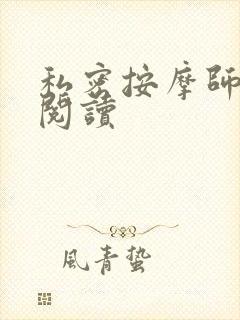 私密按摩師
閱讀
風青蟄